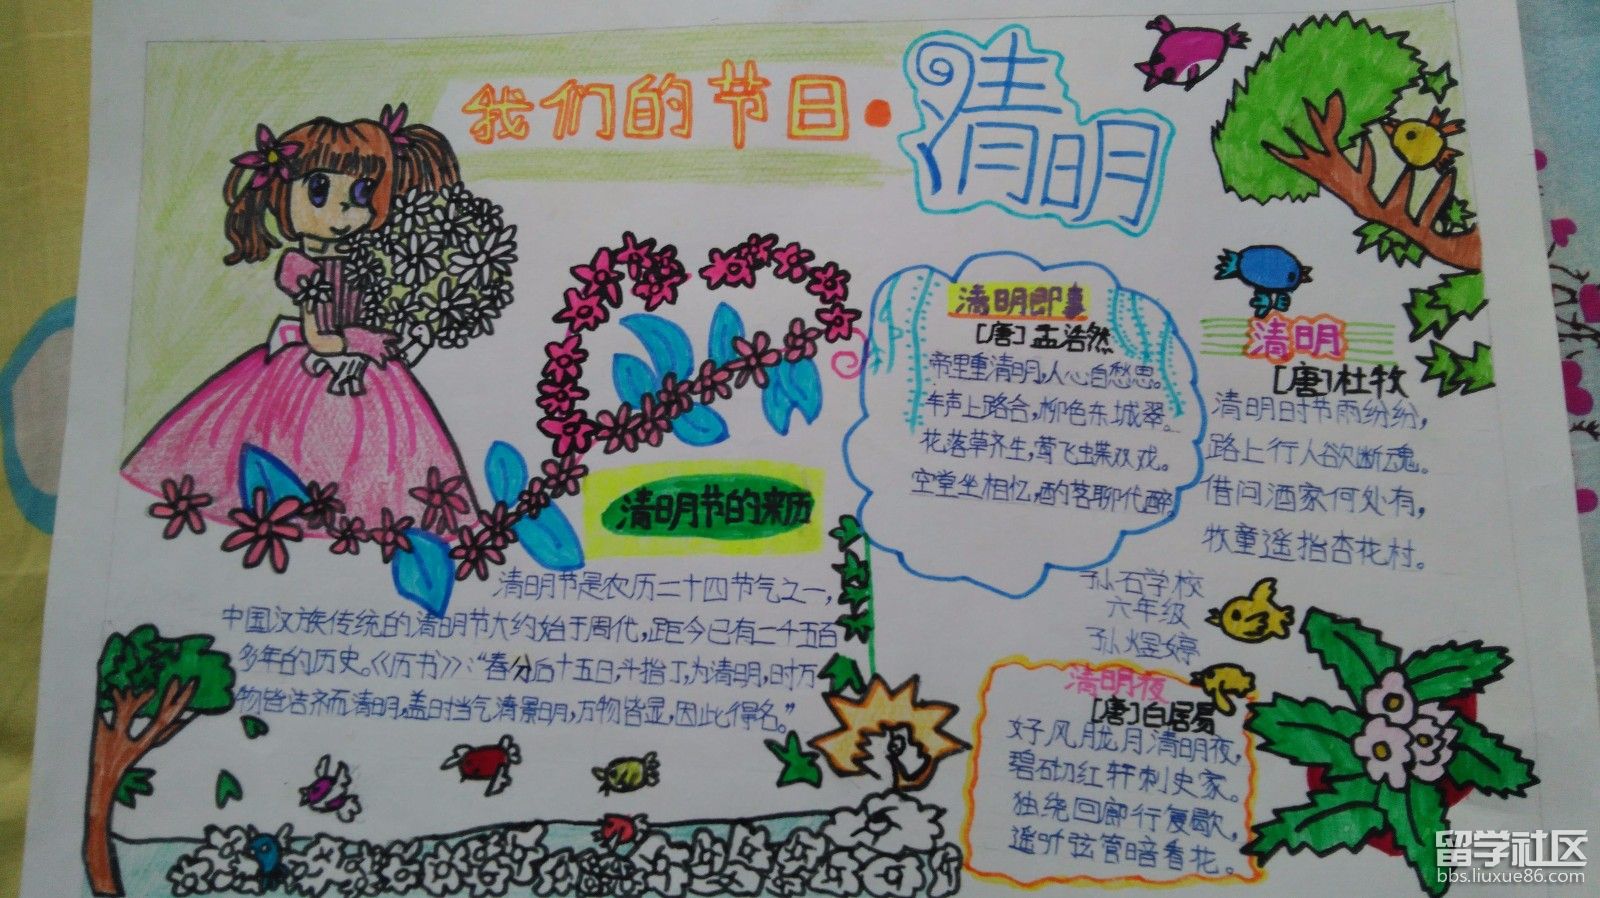 我们的节日·清明
清明节的来历
清明节是农历二十四节气之一,
中国汉族传统的清明节大约始于周代,距今已有二千五百
多年的历史。《历书》:“春分后十五日,斗指丁,为清明,时万
物皆洁齐而清明,盖时当气清景明,万物皆显,因此得名。”
清明即事
[唐]孟浩然
帝里重清明,人心自愁思。
车声上路合,柳色东城翠。
花落草齐生,莺飞蝶双戏。
空堂坐相忆,酌茗聊代醉。
清明
[唐]杜牧
清明时节雨纷纷,
路上行人欲断魂。
借问酒家何处有,
牧童遥指杏花村。
孙石学校
六年级
孙煜婷
清明夜
[唐]白居易
好风胧月清明夜,
碧砌红轩刺史家。
独绕回廊行复歇,
遥听弦管暗看花。
留学社区
bbs.liuxue86.com